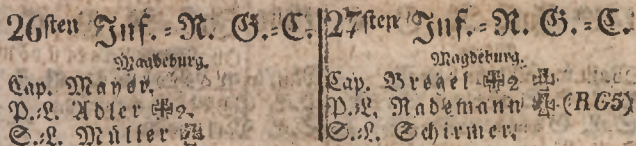 26sten Inf.=R. G.=C.
Magdeburg.
Cap. Mayer,
P.=L. Adler ✠2.
S.=L. Müller ✠
27sten Inf.=R. G.=C.
Magdeburg.
Cap. Bregel ✠2 ✠
P.=L. Rademann ✠ (RG5)
S.=L. Schirmer,